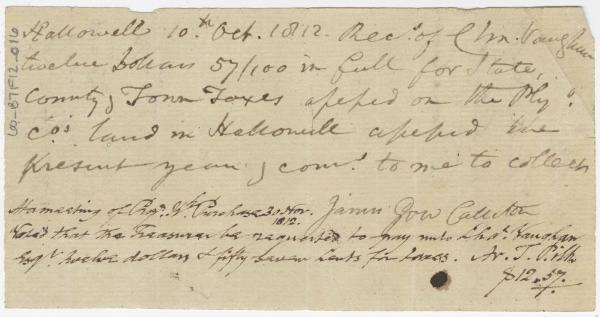 Hallowell 10.th Oct. 1812. Rec.d of Chs. Vaughan
twelve Dollars 57/100 in full for State,
County & Town Taxes assessed on the Ply.o
Co.s land in Hallowell assessed the
present year & com.d to me to collect
James Dow Collector
At a meeting of Prop.s K. Purchase 30 Nov.
1812.
Voted that the Treasurer be requested to pay unto Cha.s Vaughan
Esq.r twelve dollars & fifty seven Cents for taxes. Ar. T. Pitts
$12.57.